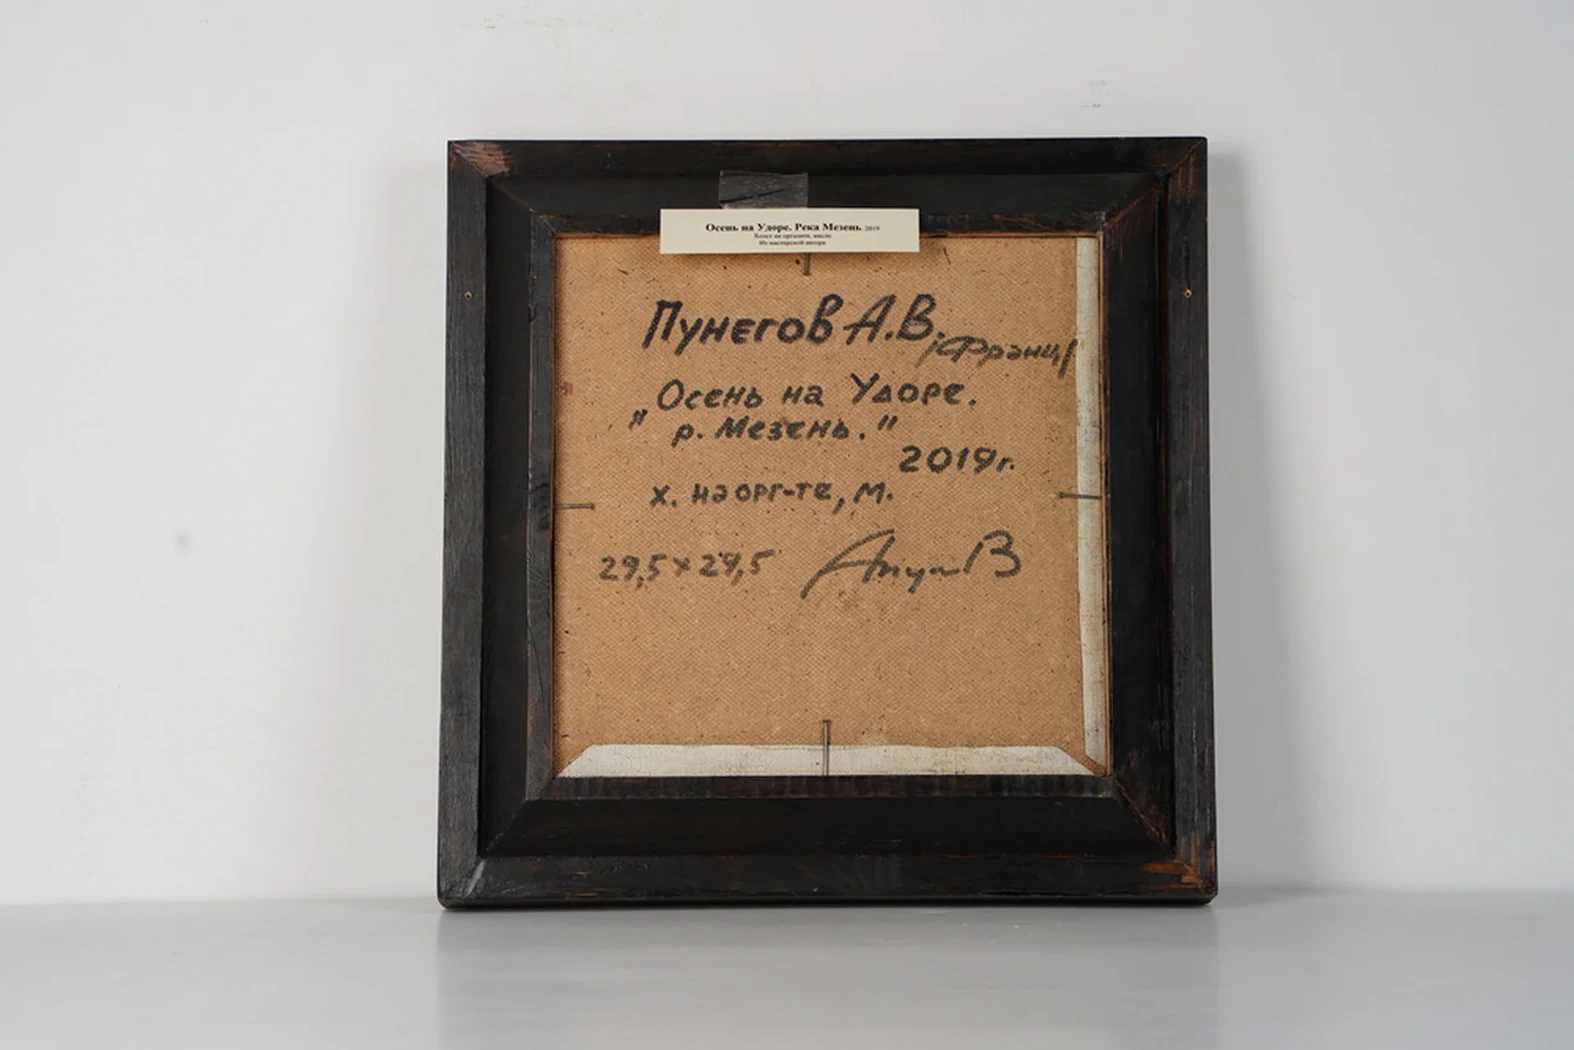 Осень на Удоре. Река Мезень 2019
Холст на оргалите, масло
Из мастерской автора
Пунегов А.В.
/Франц/
„Осень на Удоре.
р. Мезень."
2019г.
х. на орг-те, м.
29,5 x 29,5